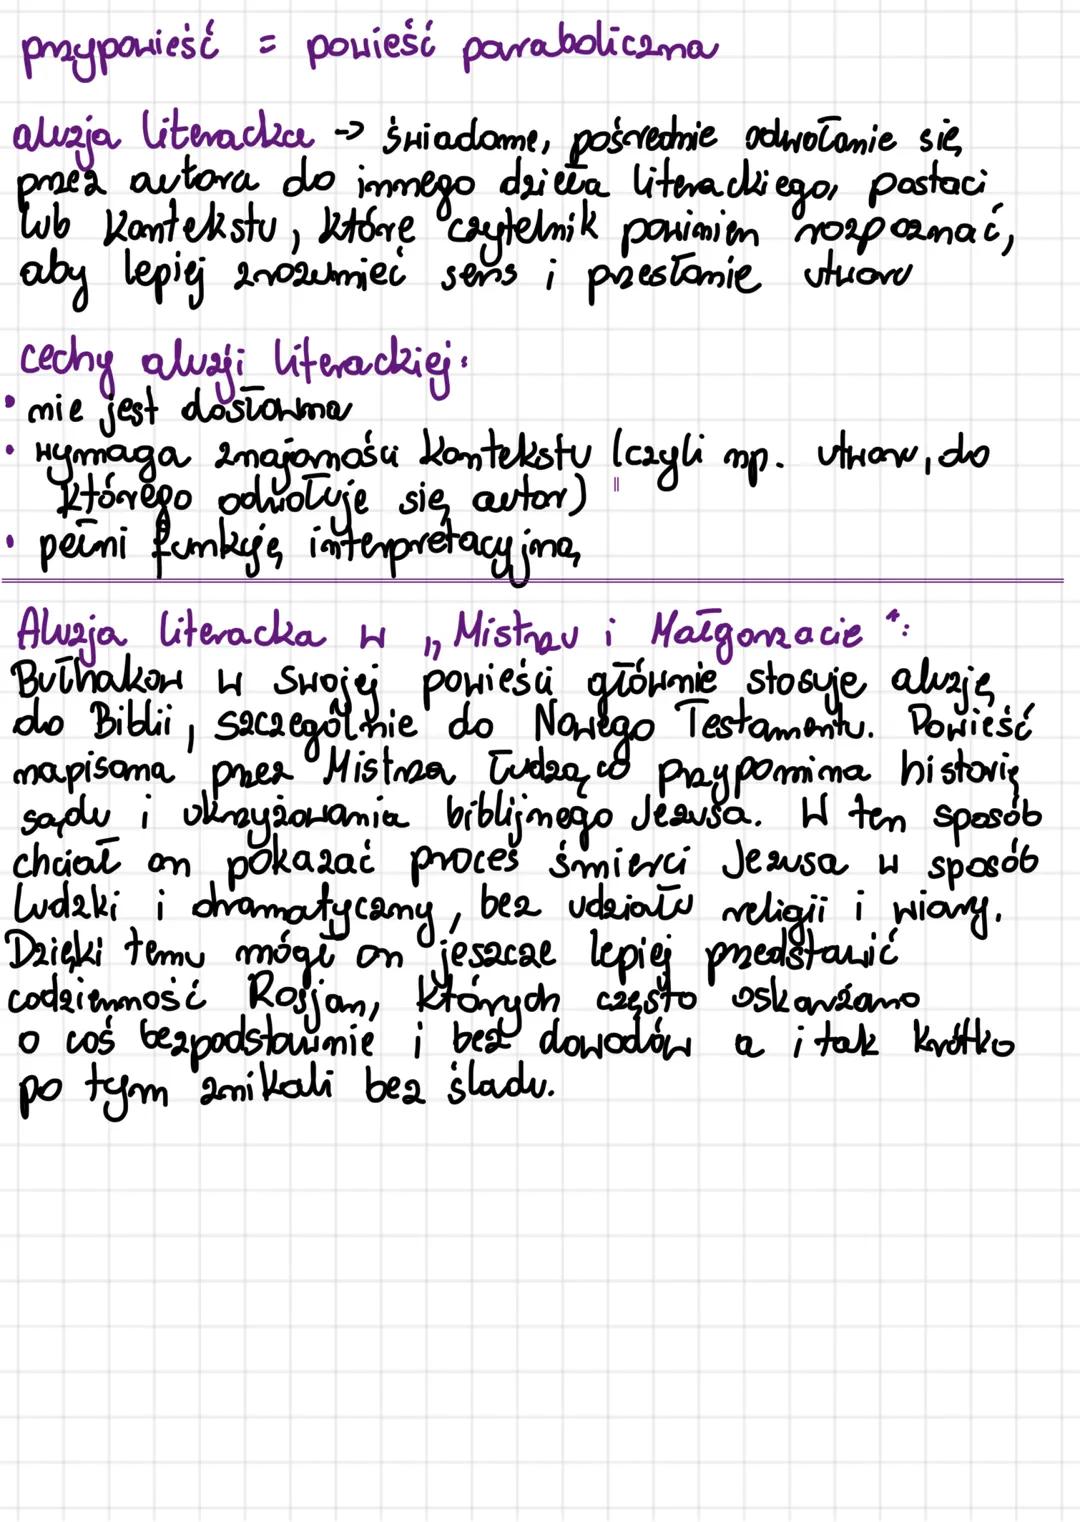 przypowieść = powieść paraboliczna
aluzja literacka -> świadome, pośrednie odwołanie się
przez autora do innego dzieła literackiego, postaci
lub kontekstu, które czytelnik powinien rozpoznać,
aby lepiej zrozumieć sens i przesłanie utworu
cechy aluzji literackiej:
• nie jest dosłowna
• wymaga znajomości kontekstu (czyli np. utworu, do
którego odwołuje się autor)
• pełni funkcję interpretacyjną
Aluzja literacka w „Mistrzu i Małgorzacie":
Bułhakow w swojej powieści głównie stosuje aluzję
do Biblii, szczególnie do Nowego Testamentu. Powieść
napisana przez Mistrza łudząco przypomina historię
sądu i ukrzyżowania biblijnego Jezusa. W ten sposób
chciał on pokazać proces śmierci Jezusa w sposób
ludzki i dramatyczny, bez udziału religii i wiary.
Dzięki temu mógł on jeszcze lepiej przedstawić
codzienność Rosjan, których często oskarżano
o coś bezpodstawnie i bez dowodów a i tak krótko
po tym znikali bez śladu.